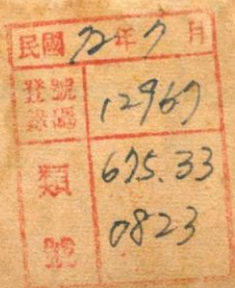 民國72年7月
登錄號碼 12967
類號 675.33
0823